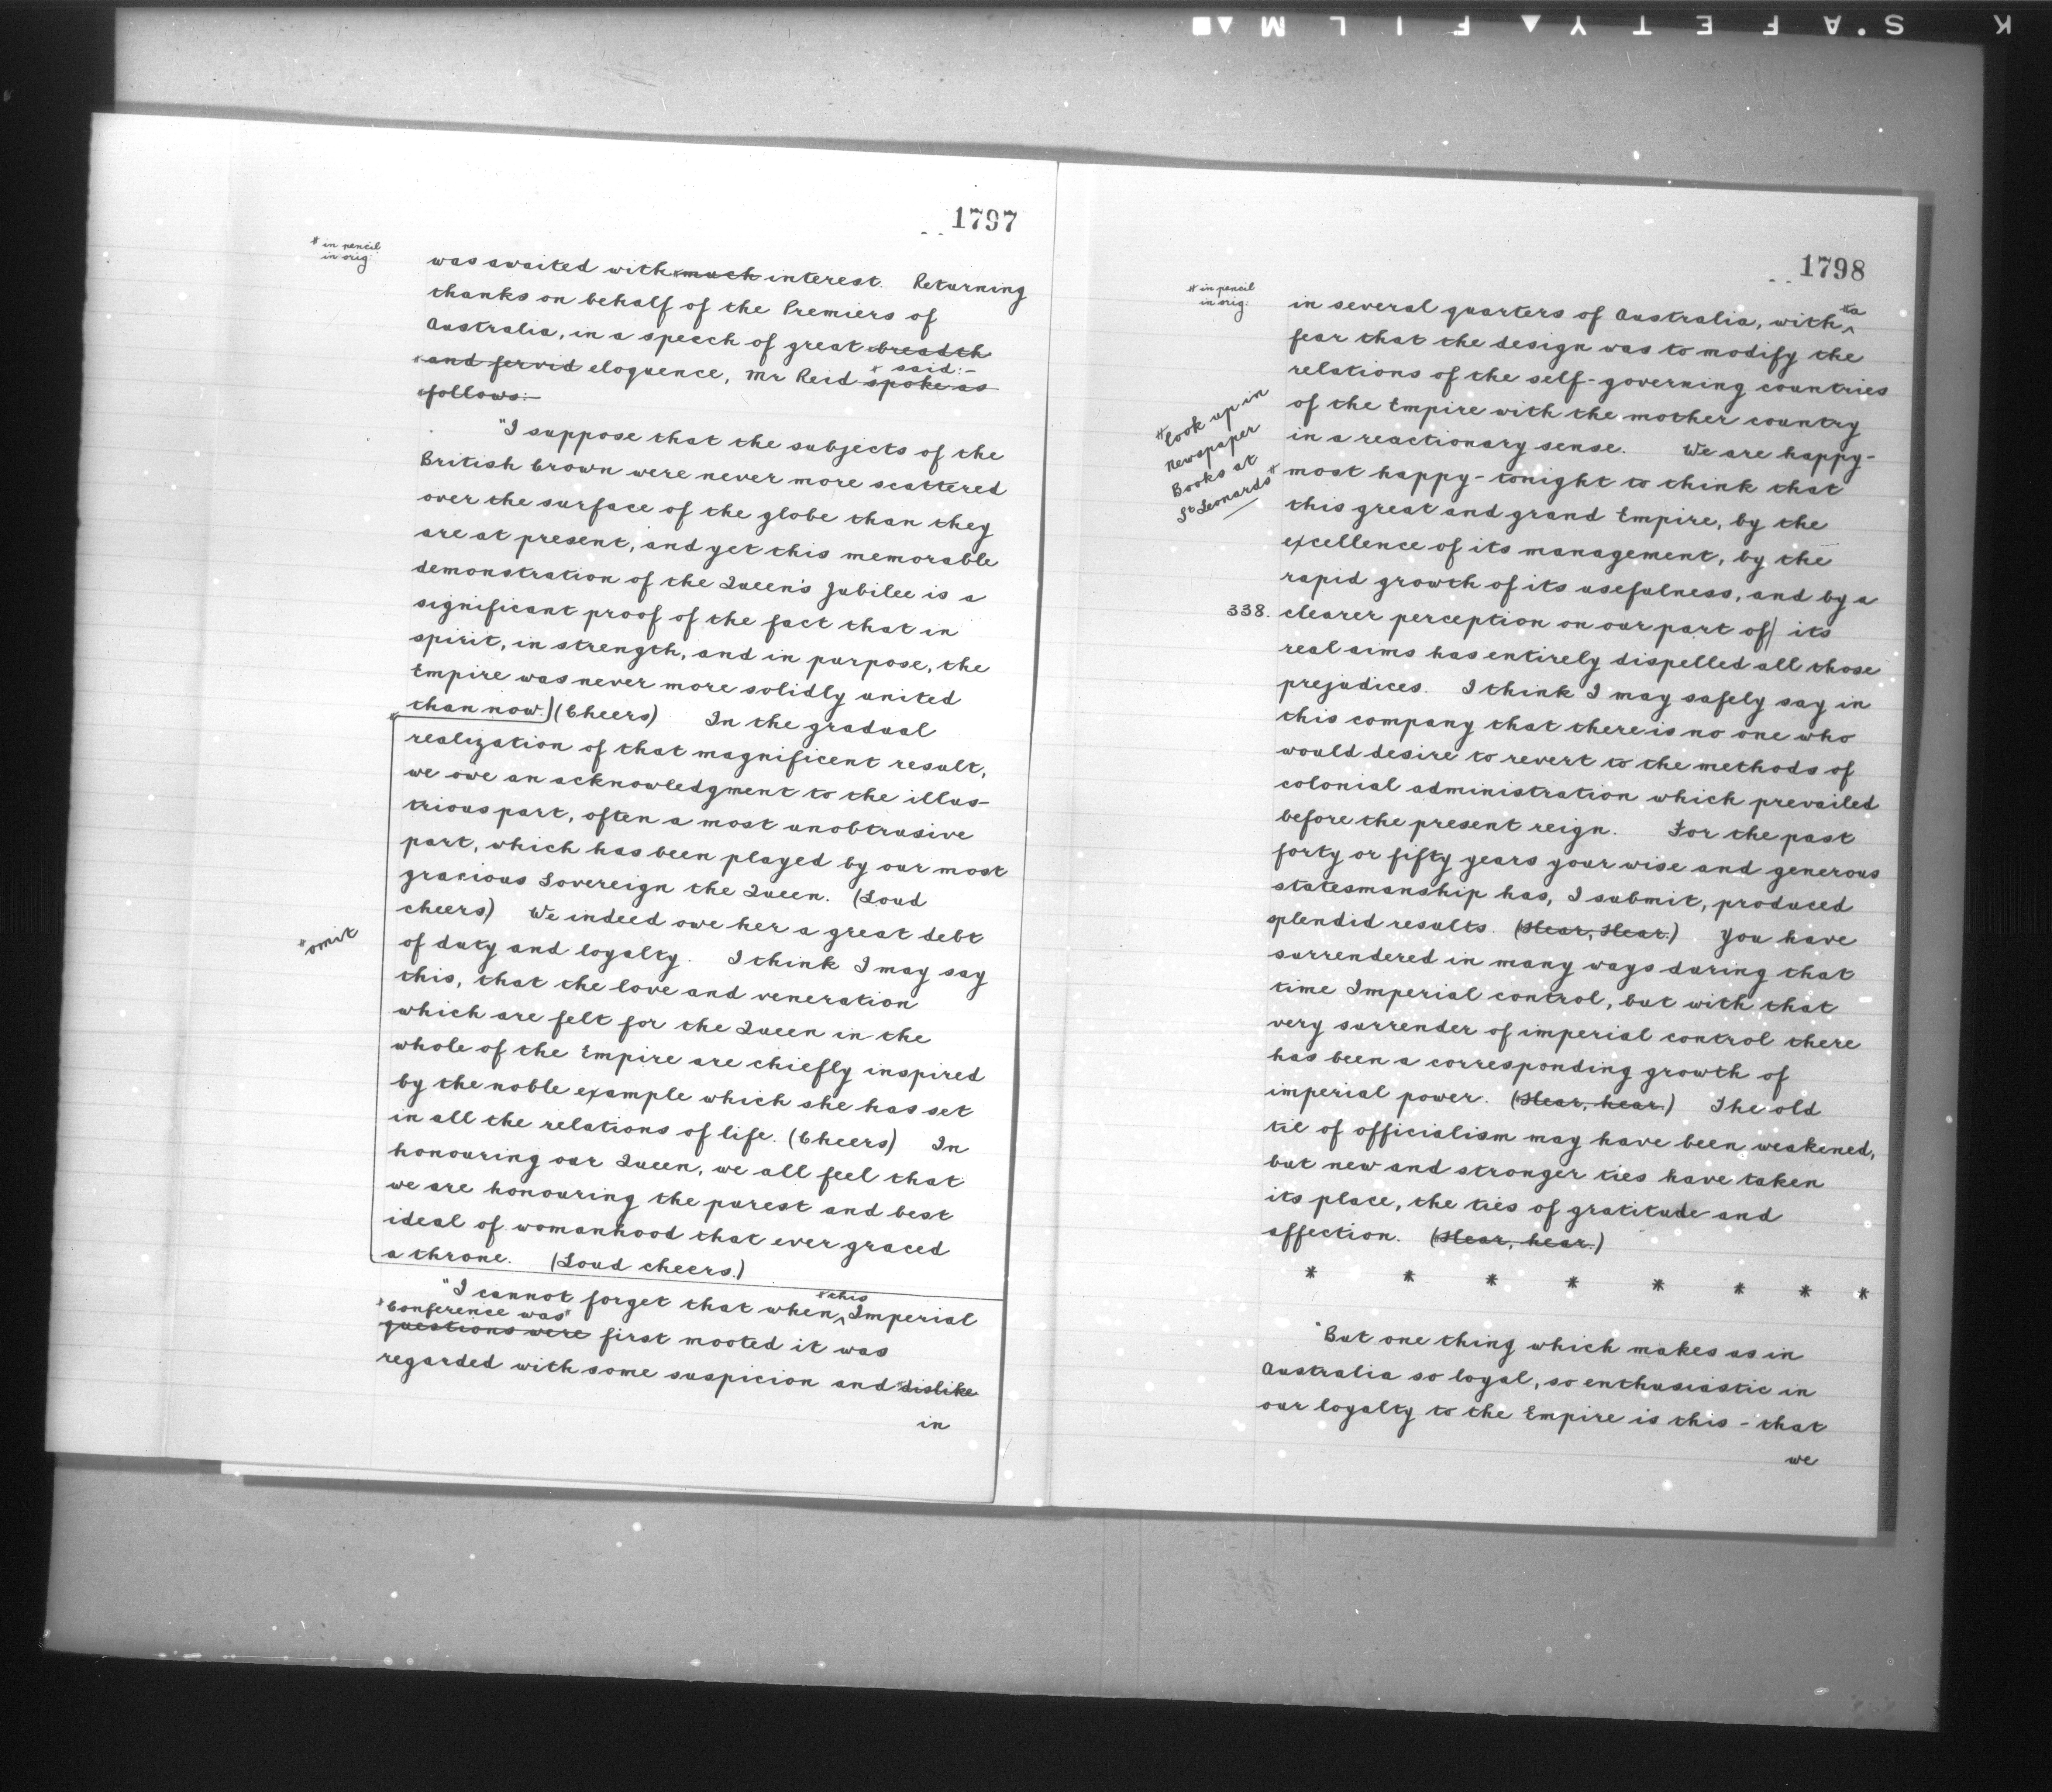 K S.AFETY▲FILM▲■
1797
* in pencil
in orig:
was awaited with *much interest. Returning
thanks on behalf of the Premiers of
Australia, in a speech of great *breadth
*and fervid eloquence, Mr Reid spoke as
* said:-
*follows:-
"I suppose that the subjects of the
British Crown were never more scattered
over the surface of the globe than they
are at present, and yet this memorable
demonstration of the Queen's Jubilee is a
significant proof of the fact that in
spirit, in strength, and in purpose, the
Empire was never more solidly united
than now.) (Cheers) In the gradual
realization of that magnificent result,
we owe an acknowledgment to the illus-
trious part, often a most unobtrusive
part, which has been played by our most
gracious Sovereign the Queen. (Loud
cheers) We indeed owe her a great debt
*omit
of duty and loyalty. I think I may say
this, that the love and veneration
which are felt for the Queen in the
whole of the Empire are chiefly inspired
by the noble example which she has set
in all the relations of life. (Cheers) In
honouring our Queen, we all feel that
we are honouring the purest and best
ideal of womanhood that ever graced
a throne. (Loud cheers.)
"I cannot forget that when ^ Imperial
*this
*Conference was*
questions were first mooted it was
regarded with some suspicion and *dislike
in
1798
* in pencil
in orig:
in several quarters of Australia, with ^
*a
fear that the design was to modify the
relations of the self-governing countries
of the Empire with the mother country
in a reactionary sense. We are happy-
*Look up in
Newspaper
Books at
St Leonards*
most happy - tonight to think that
this great and grand Empire, by the
excellence of its management, by the
rapid growth of its usefulness, and by a
338. clearer perception on our part of| its
real aims has entirely dispelled all those
prejudices. I think I may safely say in
this company that there is no one who
would desire to revert to the methods of
colonial administration which prevailed
before the present reign. For the past
forty or fifty years your wise and generous
statesmanship has, I submit, produced
splendid results. (Hear, Hear.) You have
surrendered in many ways during that
time Imperial control, but with that
very surrender of imperial control there
has been a corresponding growth of
imperial power. (Hear, hear.) The old
tie of officialism may have been weakened,
but new and stronger ties have taken
its place, the ties of gratitude and
affection. (Hear, hear.)
* * * * * * * *
"But one thing which makes us in
Australia so loyal, so enthusiastic in
our loyalty to the Empire is this - that
we